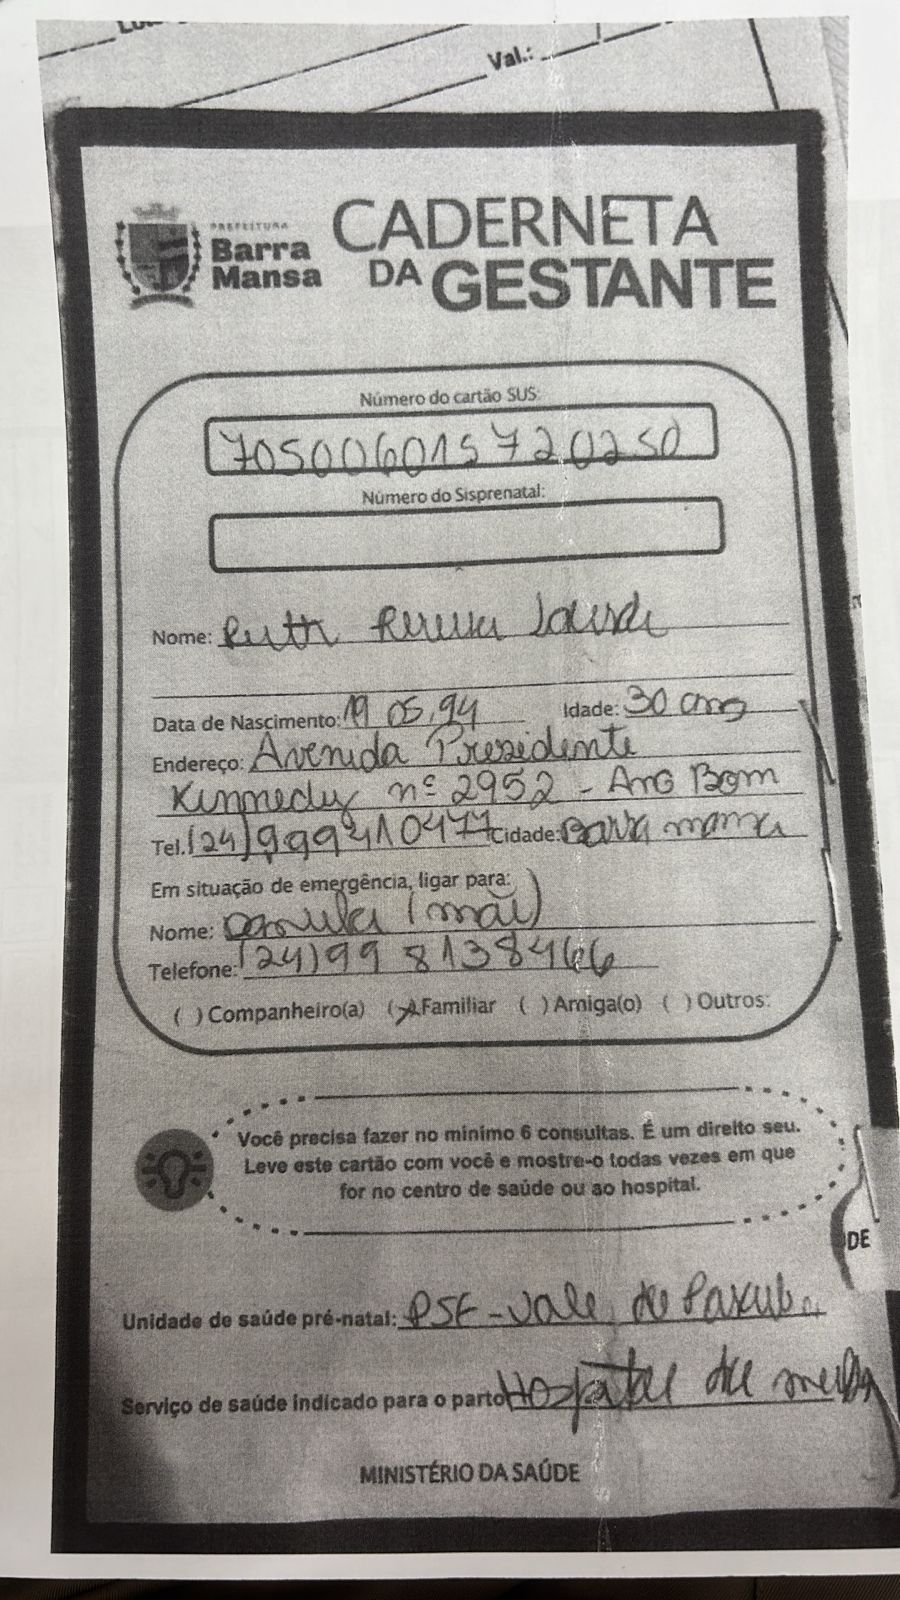 Val.:
PREFEITURA
Barra
Mansa
CADERNETA
DA GESTANTE
Número do cartão SUS:
705006015720250
Número do Sisprenatal:
Nome: Ruth
Data de Nascimento: 19 05.94 Idade: 30 anos
Endereço: Avenida Presidente
Kennedy nº 2952 - Ano Bom
Tel. (24) Cidade: Barra mansa
Em situação de emergência, ligar para:
Nome: (mãe)
Telefone: (24) 99 8138466
( ) Companheiro(a) (x) Familiar ( ) Amiga(o) ( ) Outros:
Você precisa fazer no mínimo 6 consultas. É um direito seu.
Leve este cartão com você e mostre-o todas vezes em que
for no centro de saúde ou ao hospital.
DE
Unidade de saúde pré-natal: PSF - Vale do Paraíba
Serviço de saúde indicado para o parto Hospital da
MINISTÉRIO DA SAÚDE